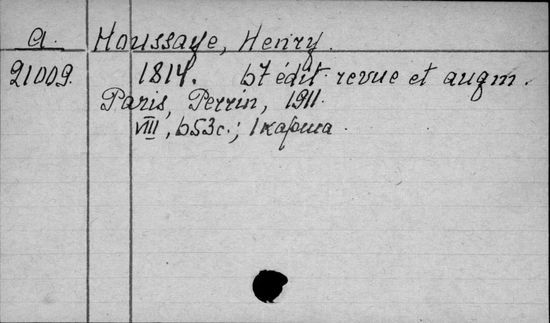 a. Houssaye, Henry.
21009. 1814. 67 édit. revue et augm.
Paris, Perrin, 1911.
VIII, 653 c.; 1 карта.